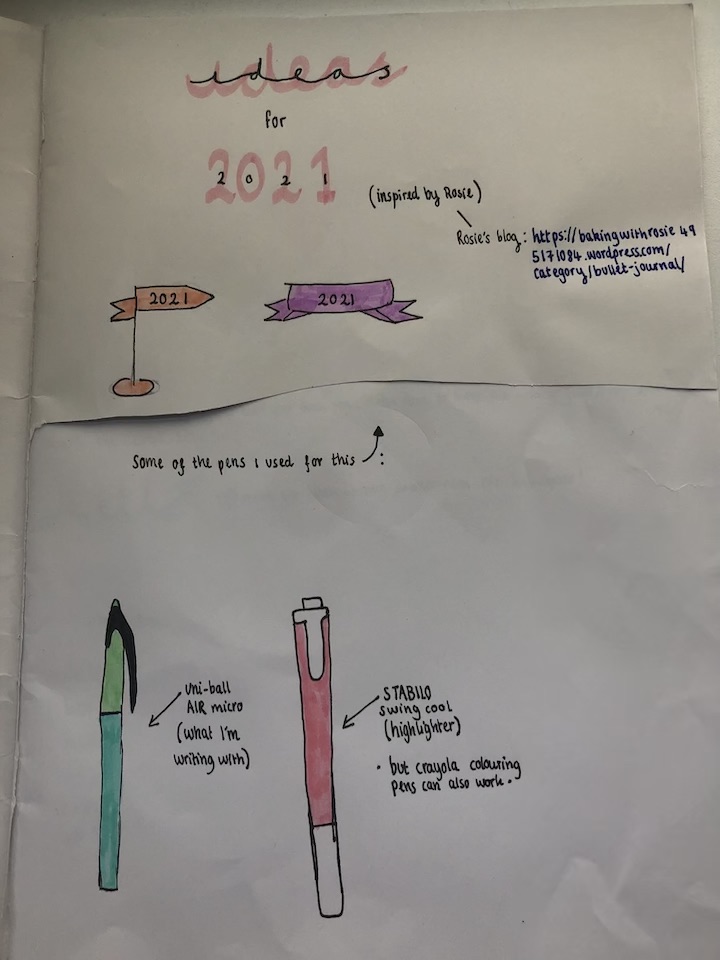 ideas
for
2021
(inspired by Rosie)
Rosie's blog: https://bakingwithrosie49
5171084.wordpress.com/
category/bullet-journal/
2021
2021
Some of the pens I used for this :
uni-ball
AIR micro
(what I'm
writing with)
STABILO
swing cool
(highlighter)
• but crayola colouring
pens can also work.